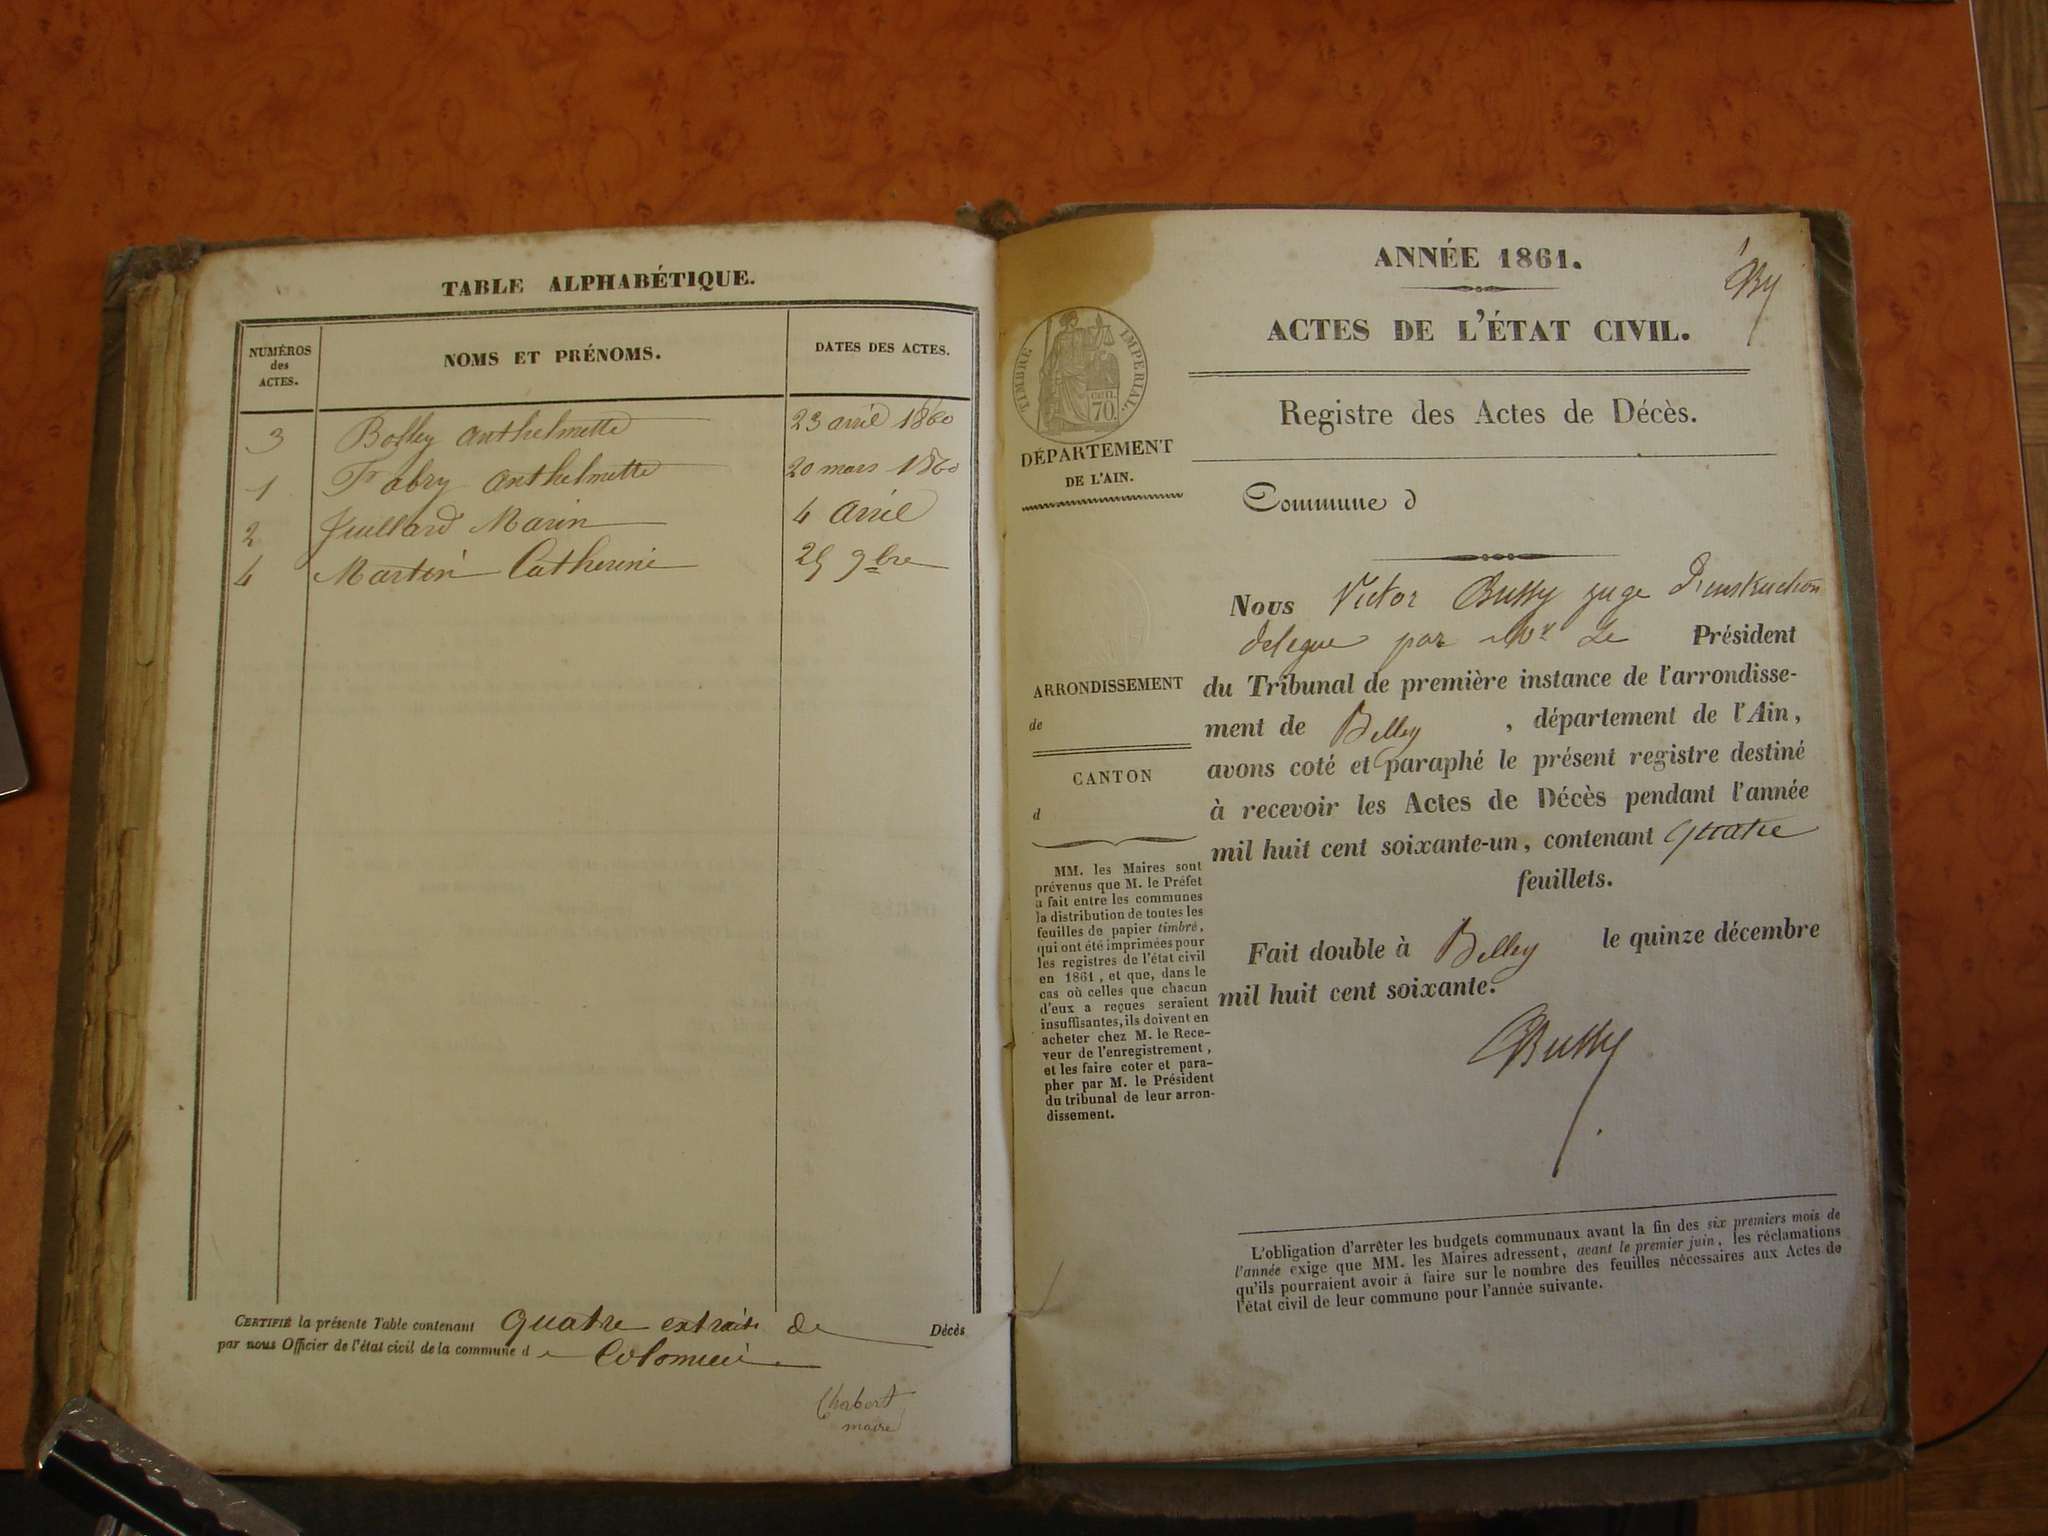 TABLE ALPHABÉTIQUE.
NUMÉROS
des
ACTES.
NOMS ET PRÉNOMS.
DATES DES ACTES.
3 Bolley Anthelmette 23 avril 1860
1 Fabry Anthelmette 20 mars 1860
2 Juillard Marin 4 avril
4 Martin Catherine 25 9bre
CERTIFIÉ la présente Table contenant quatre extraits de Décès
par nous Officier de l'état civil de la commune de Colomieu
Chabert
maire
1
ANNÉE 1861.
ACTES DE L'ÉTAT CIVIL.
Registre des Actes de Décès.
TIMBRE IMPÉRIAL.
CEN.
70.
DÉPARTEMENT
DE L'AIN.
Commune d
ARRONDISSEMENT
de
CANTON
d
MM. les Maires sont
prévenus que M. le Préfet
a fait entre les communes
la distribution de toutes les
feuilles de papier timbré,
qui ont été imprimées pour
les registres de l'état civil
en 1861, et que, dans le
cas où celles que chacun
d'eux a reçues seraient
insuffisantes, ils doivent en
acheter chez M. le Rece-
veur de l'enregistrement,
et les faire coter et para-
pher par M. le Président
du tribunal de leur arron-
dissement.
Nous Victor Bussy juge d'instruction
delegue par Mr Le Président
du Tribunal de première instance de l'arrondisse-
ment de Belley, département de l'Ain,
avons coté et paraphé le présent registre destiné
à recevoir les Actes de Décès pendant l'année
mil huit cent soixante-un, contenant quatre
feuillets.
Fait double à Belley le quinze décembre
mil huit cent soixante.
Bussy
L'obligation d'arrêter les budgets communaux avant la fin des six premiers mois de
l'année exige que MM. les Maires adressent, avant le premier juin, les réclamations
qu'ils pourraient avoir à faire sur le nombre des feuilles nécessaires aux Actes de
l'état civil de leur commune pour l'année suivante.